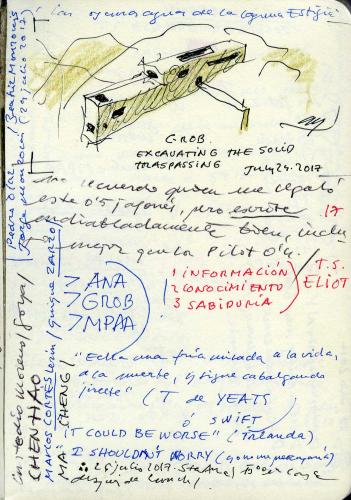 Las oscuras aguas de la laguna Estigia
GROB
EXCAVATING THE SOLID
TRASPASSING July 29. 2017
No recuerdo quien me regaló
este 0'5 japonés, pero escribe
endiabladamente bien, incluso
mejor que los Pilot 0'4.
17
1 INFORMACIÓN
2 CONOCIMIENTO
3 SABIDURÍA
T.S.
ELIOT
> ANA
> GROB
> MPAA
"Echa una fría mirada a la vida,
a la muerte, y sigue cabalgando
jinete" (T de YEATS
ó SWIFT
"IT COULD BE WORSE" (Irlanda)
I SHOULDN'T WORRY
julio 2017. Ste Ana
después de lunch
Pedro Díaz / Beatriz
Jorge (29 julio 2017)
Moreno / Goya /
CHEN HAO
MARCOS CORTÉS / quique ZARZO
MA CHENG /